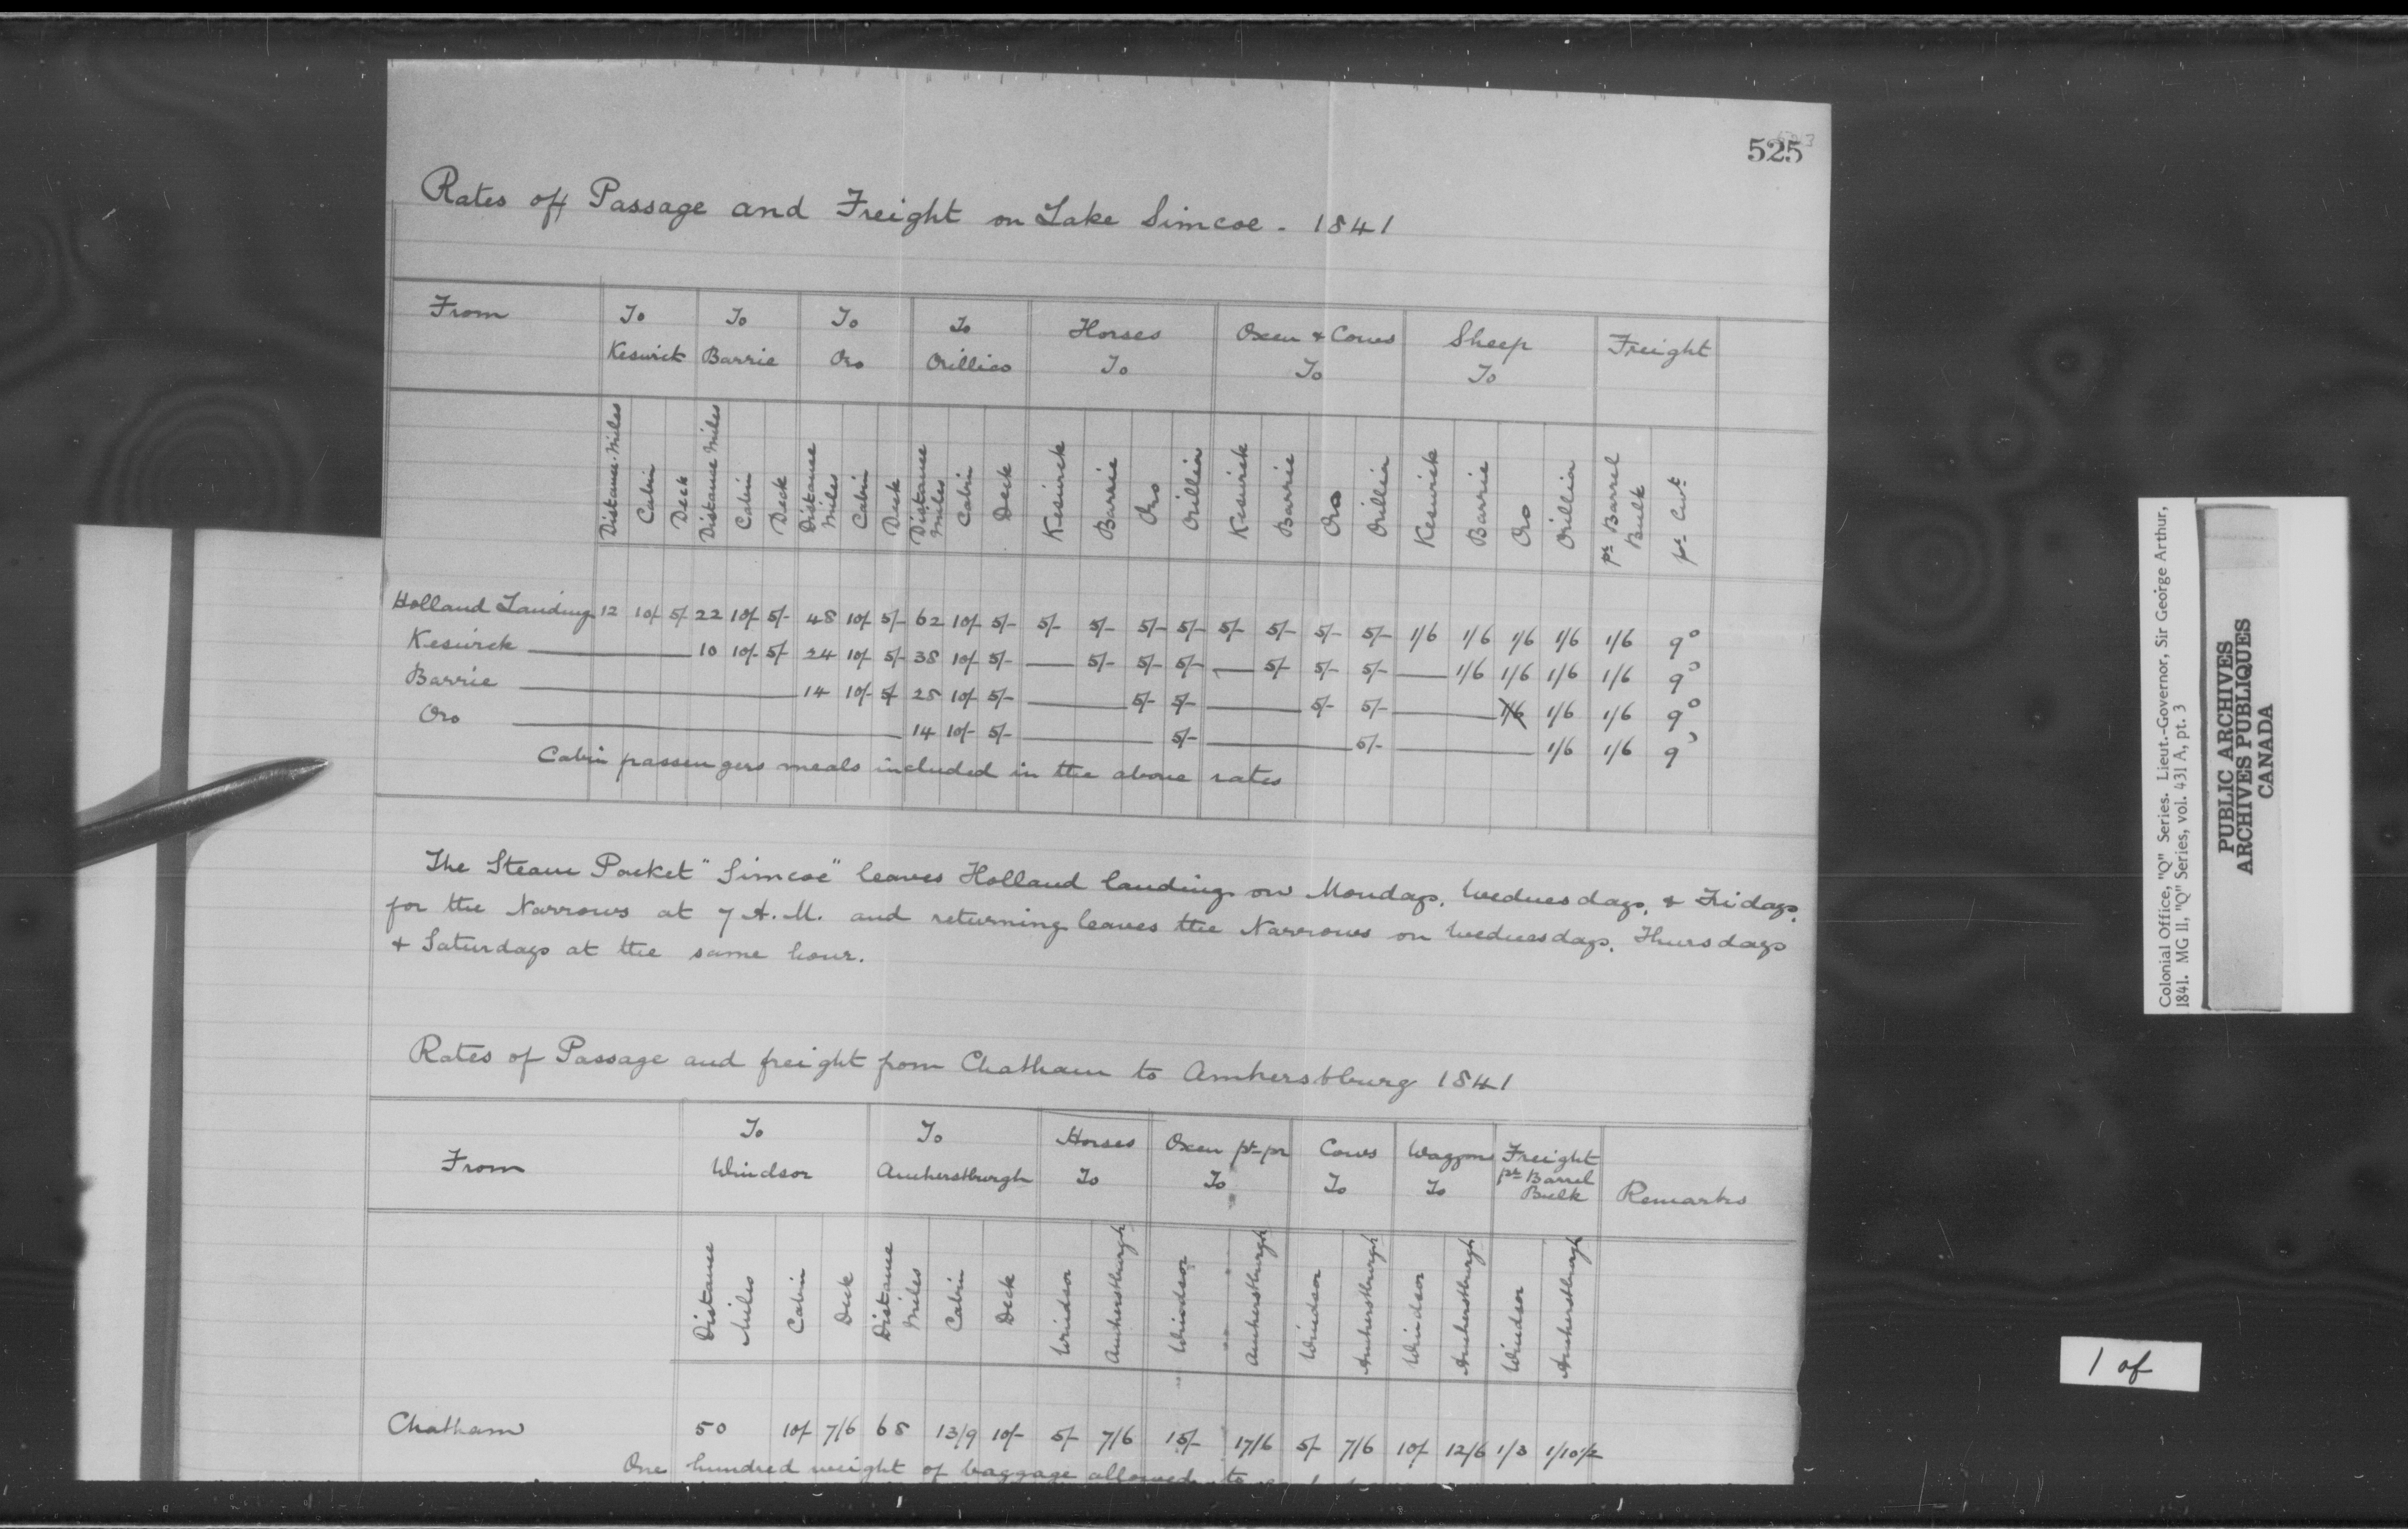 525
Rates of Passage and Freight on Lake Simcoe - 1841
From To To To To Horses Oxen & Cows Sheep Freight
Keswick Barrie Oro Orillia To To To
Distance Miles Cabin Deck Distance Miles Cabin Deck Distance Miles Cabin Deck Distance Miles Cabin Deck Keswick Barrie Oro Orillia Keswick Barrie Oro Orillia Keswick Barrie Oro Orillia pr Barrel Bulk pr Cwt
Holland Landing 12 10/- 5/- 22 10/- 5/- 48 10/- 5/- 62 10/- 5/- 5/- 5/- 5/- 5/- 5/- 5/- 5/- 5/- 1/6 1/6 1/6 1/6 1/6 9°
Keswick 10 10/- 5/- 24 10/- 5/- 38 10/- 5/- 5/- 5/- 5/- 5/- 5/- 5/- 1/6 1/6 1/6 1/6 9°
Barrie 14 10/- 5/- 28 10/- 5/- 5/- 5/- 5/- 5/- 1/6 1/6 1/6 9°
Oro 14 10/- 5/- 5/- 5/- 1/6 1/6 9°
Cabin passengers meals included in the above rates
The Steam Packet "Simcoe" leaves Holland landing on Mondays, Wednesdays, & Fridays,
for the Narrows at 7 A.M. and returning leaves the Narrows on Wednesdays, Thursdays
& Saturdays at the same hour.
Rates of Passage and freight from Chatham to Amherstburg 1841
From To To Horses Oxen pr pr Cows Waggons Freight Remarks
Windsor Amherstburgh To To To To pr Barrel Bulk
Distance Miles Cabin Deck Distance Miles Cabin Deck Windsor Amherstburgh Windsor Amherstburgh Windsor Amherstburgh Windsor Amherstburgh Windsor Amherstburgh
Chatham 50 10/- 7/6 68 13/9 10/- 5/- 7/6 15/- 17/6 5/- 7/6 10/- 12/6 1/3 1/10 1/2
One hundred weight of baggage allowed to
Colonial Office, "Q" Series. Lieut.-Governor, Sir George Arthur,
1841. MG 11, "Q" Series, vol. 431 A, pt. 3
PUBLIC ARCHIVES
ARCHIVES PUBLIQUES
CANADA
1 of